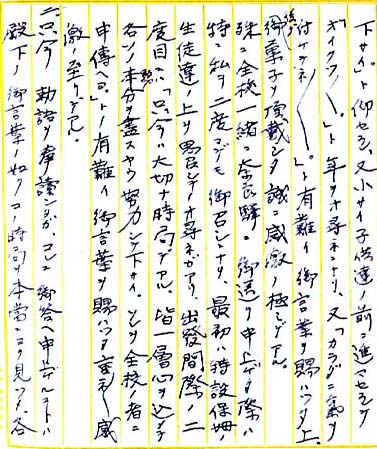 下サイ」ト仰セラレ、又小サイ子供達ノ前ニ進マセラレテ
「オイクツ、〳〵」ト年ヲオ尋ネニナリ、又「カラダニ氣ヲ
付ケナサイネ〳〵」ト有難イ御言葉ヲ賜ハツタ上、
御菓子ヲ頂戴シタ 誠ニ感激ノ極ミデアル。
殊ニ全校一緒ニ奈良驛ニ御送リ申上ゲタ際ハ
特ニ私ヲ二度マデモ御召シニナリ、最初ノ時、設保姆ノ
生徒達ノ上ヲ 尋ネガアリ、出發間際ノ二
度目ニハ「只今ハ大切ナ時局デアル、皆一層心ヲ込メテ
各ソノ本分ヲ盡スヤウ努力シテ下サイ。ソレヲ全校ノ者ニ
申傳ヘヨ」トノ有難イ御言葉ヲ賜ハツタ 感
激ノ至リデアル。
二、只今 勅語ヲ奉讀シタガ、コレニ御答ヘ申上ゲルコトハ
殿下ノ御言葉ノ如クコノ時局ヲ本當ニヨク見ツメ、各